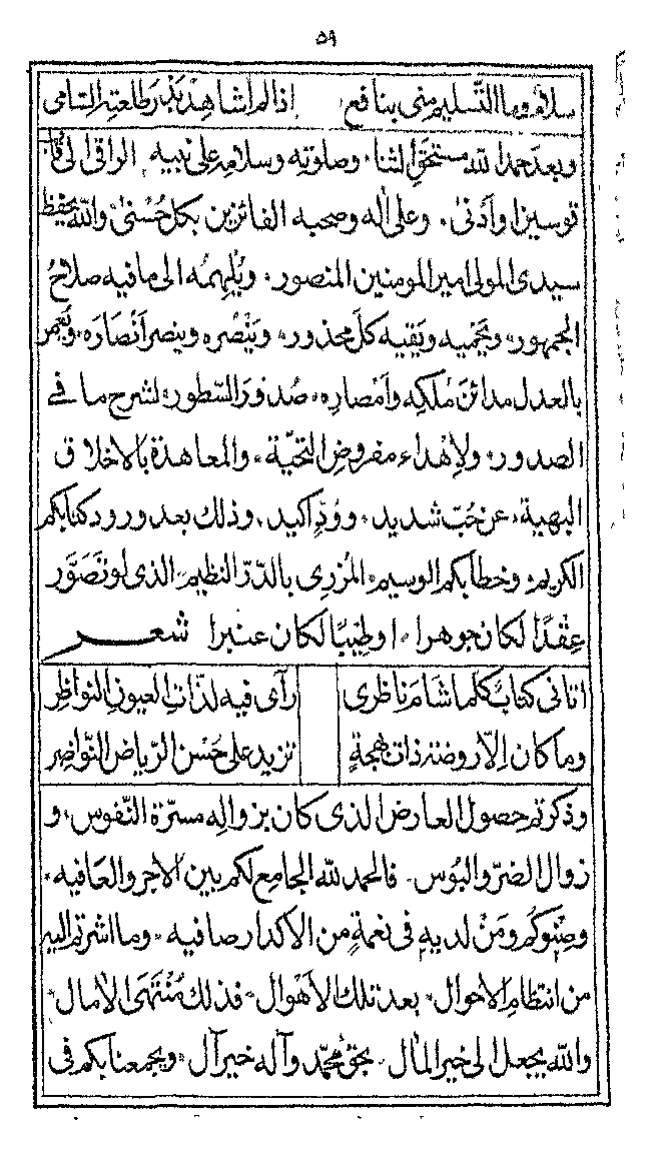 ٥٩
سلام وما التّسليم منى بنافع اذا لم اشاهد بدر طلعته السّامى
وبعد حمد الله مستحق الثنا، وصلوته وسلامه على نبيه الراقى الى قاب
قوسين او أدنىٰ، وعلى اٰله وصحبه الفائزين بكل حُسْنىٰ، والله يحفظ
سيدى المولى امير المومنين المنصور، ويُلهِمُه الى ما فيه صلاحُ
الجمهور، ويَحْمِيه ويَقيه كلَّ محذور، ويَنْصُره وينصر اَنْصَارَه، ويَعْمر
بالعدل مدائنَ مُلكِه وأمْصارِه، صُدورَ السّطور، لشرح ما فے
الصدور، ولإهْداء مفروضِ التحيّة، والمعاهدة بالاخلاق
البهية، عن حُبّ شديد، ووُدّ اكيد، وذلك بعد ورود كتابكم
الكريم، وخطابكم الوسيم، المُزرِى بالدّرّ النظيم، الذى لو تَصَوَّر
عِقْدًا لكان جوهرا، او طِيبًا لكان عنبرا شعر
اتانى كتابٌ كلما شامَ ناظرى رآى فيه لذّاتِ العيونِ النواظِر
وما كان اِلّا روضة ذات بهجةٍ تزيد على حُسْن الرّياض النّواضِر
وذكرتم حصول العارض الذى كان بزوالِه مسرّة النّفوس، و
زوال الضرّ والبُوس، فالحمد لله الجامع لكم بين الاجر والعَافيه،
وصِنْوكُم ومَنْ لديهِ فى نعمةٍ من الاكدار صافيه، وما اشرتم اليه
من انتظامِ الاحوال، بعد تلك الاَهْوال، فذلك مُنْتَهَى الاٰمال،
والله يجعل الى خير المٰال، بحق محمّد وآله خير آل، ويجمعنا بكم فى